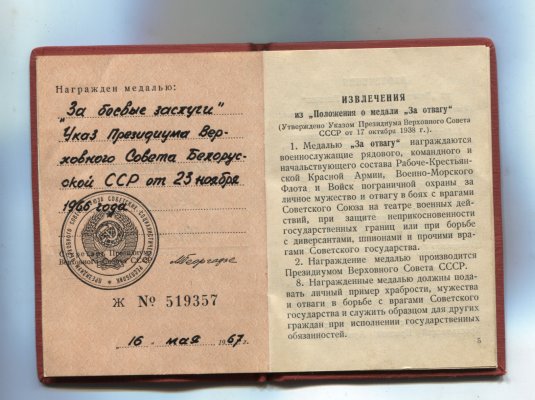 Награжден медалью:
„За боевые заслуги"
Указ Президиума Вер-
ховного Совета Белорус-
ской ССР от 23 ноября
1966 года
Секретарь Президиума
Верховного Совета СССР
Ж № 519357
„16" мая 1967г.
ИЗВЛЕЧЕНИЯ
из „Положения о медали „За отвагу"
(Утверждено Указом Президиума Верховного Совета
СССР от 17 октября 1938 г.).
1. Медалью „За отвагу" награждаются
военнослужащие рядового, командного и
начальствующего состава Рабоче-Крестьян-
ской Красной Армии, Военно-Морского
Флота и Войск пограничной охраны за
личное мужество и отвагу в боях с врагами
Советского Союза на театре военных дей-
ствий, при защите неприкосновенности
государственных границ или при борьбе
с диверсантами, шпионами и прочими вра-
гами Советского государства.
2. Награждение медалью производится
Президиумом Верховного Совета СССР.
8. Награжденные медалью должны пода-
вать личный пример храбрости, мужества
и отваги в борьбе с врагами Советского
государства и служить образцом для других
граждан при исполнении государственных
обязанностей.
5